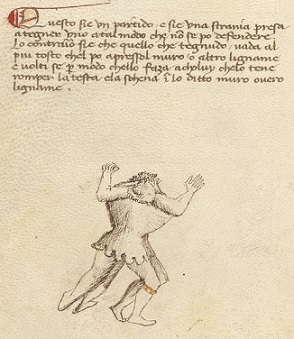 Questo sie un partido, e sie una strania presa
a tegner uno a tal modo che non se pò defendere
Lo contrario sie che quello che tegnudo, vada al
piu tosto chel po apresso l muro o altro ligname
e volti se per modo chello faza a chului chelo tene
romper la testa e la schena in lo ditto muro overo
ligname.